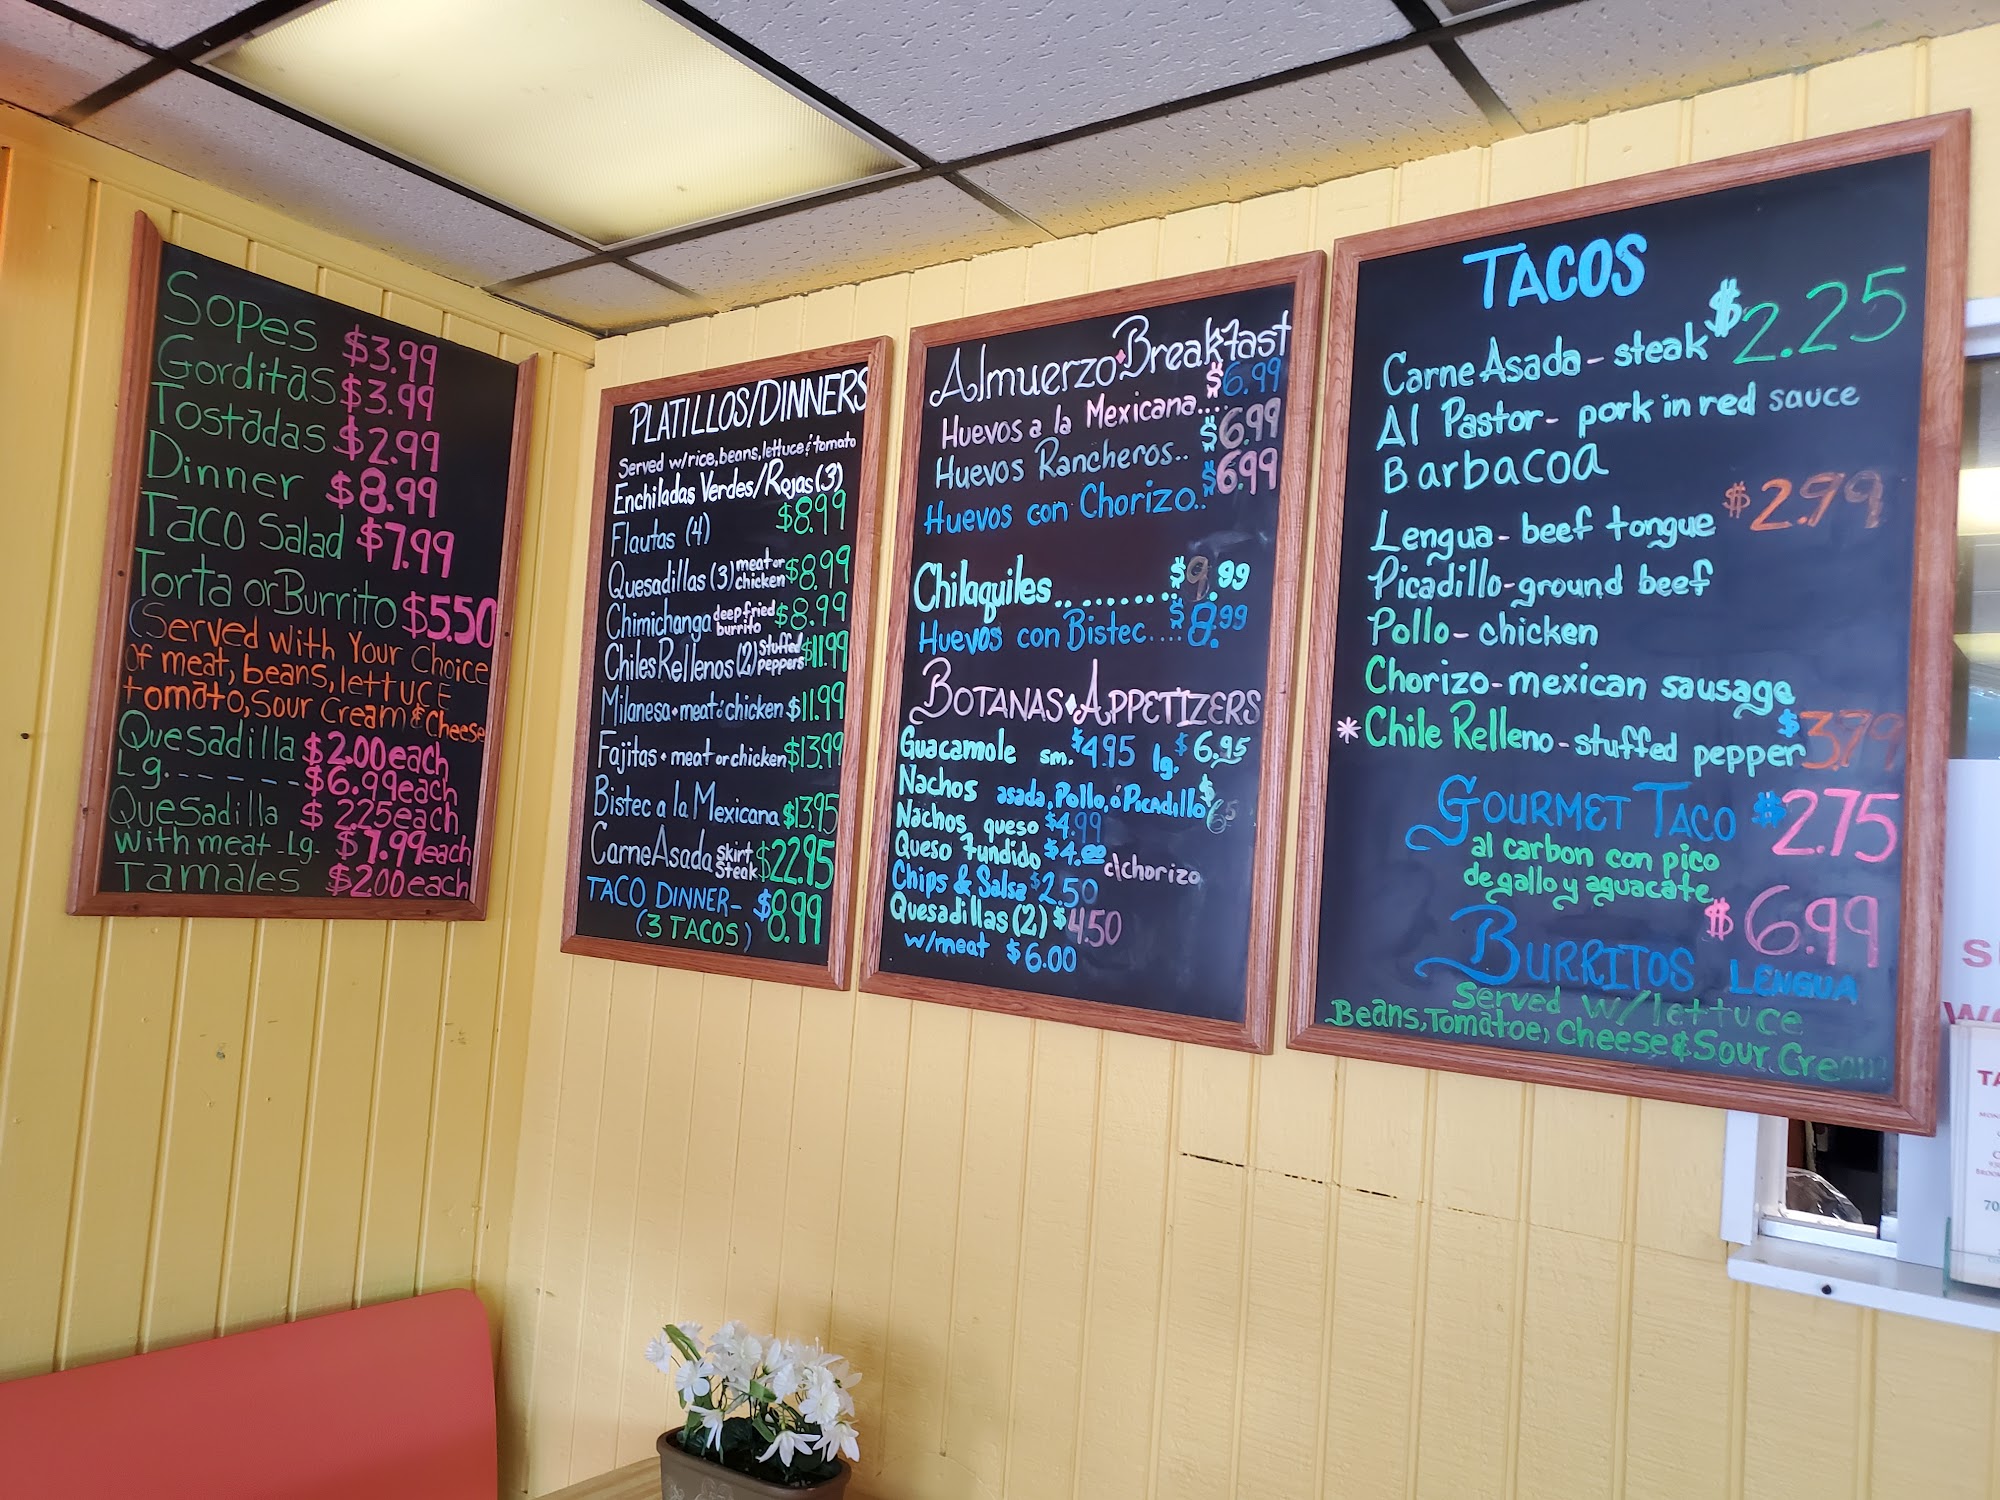 Sopes $3.99
Gorditas $3.99
Tostadas $2.99
Dinner $8.99
Taco Salad $7.99
Torta or Burrito $5.50
(Served with Your Choice
of meat, beans, lettuce
tomato, Sour Cream & Cheese
Quesadilla $2.00 each
Lg.------- $6.99 each
Quesadilla $2.25 each
with meat - Lg. $7.99 each
Tamales $2.00 each
PLATILLOS/DINNERS
Served w/rice, beans, lettuce & tomato
Enchiladas Verdes/Rojas (3)
Flautas (4) $8.99
Quesadillas (3) meat or chicken $8.99
Chimichanga deep fried burrito $8.99
Chiles Rellenos (2) stuffed peppers $11.99
Milanesa • meat ó chicken $11.99
Fajitas • meat or chicken $13.99
Bistec a la Mexicana $13.95
Carne Asada Skirt Steak $22.95
TACO DINNER- $8.99
(3 TACOS)
Almuerzo • Breakfast
Huevos a la Mexicana.... $6.99
Huevos Rancheros.. $6.99
Huevos con Chorizo.. $6.99
Chilaquiles.......... $9.99
Huevos con Bistec.... $8.99
BOTANAS • APPETIZERS
Guacamole sm. $4.95 lg. $6.95
Nachos asada, Pollo, ó Picadillo $
Nachos queso $4.99
Queso fundido $4.00 c/chorizo
Chips & Salsa $2.50
Quesadillas (2) $4.50
w/meat $6.00
TACOS
Carne Asada - steak $2.25
Al Pastor - pork in red sauce
Barbacoa
Lengua - beef tongue $2.99
Picadillo - ground beef
Pollo - chicken
Chorizo - mexican sausage
* Chile Relleno - stuffed pepper $3.79
GOURMET TACO $2.75
al carbon con pico
de gallo y aguacate
BURRITOS LENGUA $6.99
Served w/lettuce
Beans, Tomatoe, Cheese & Sour Cream